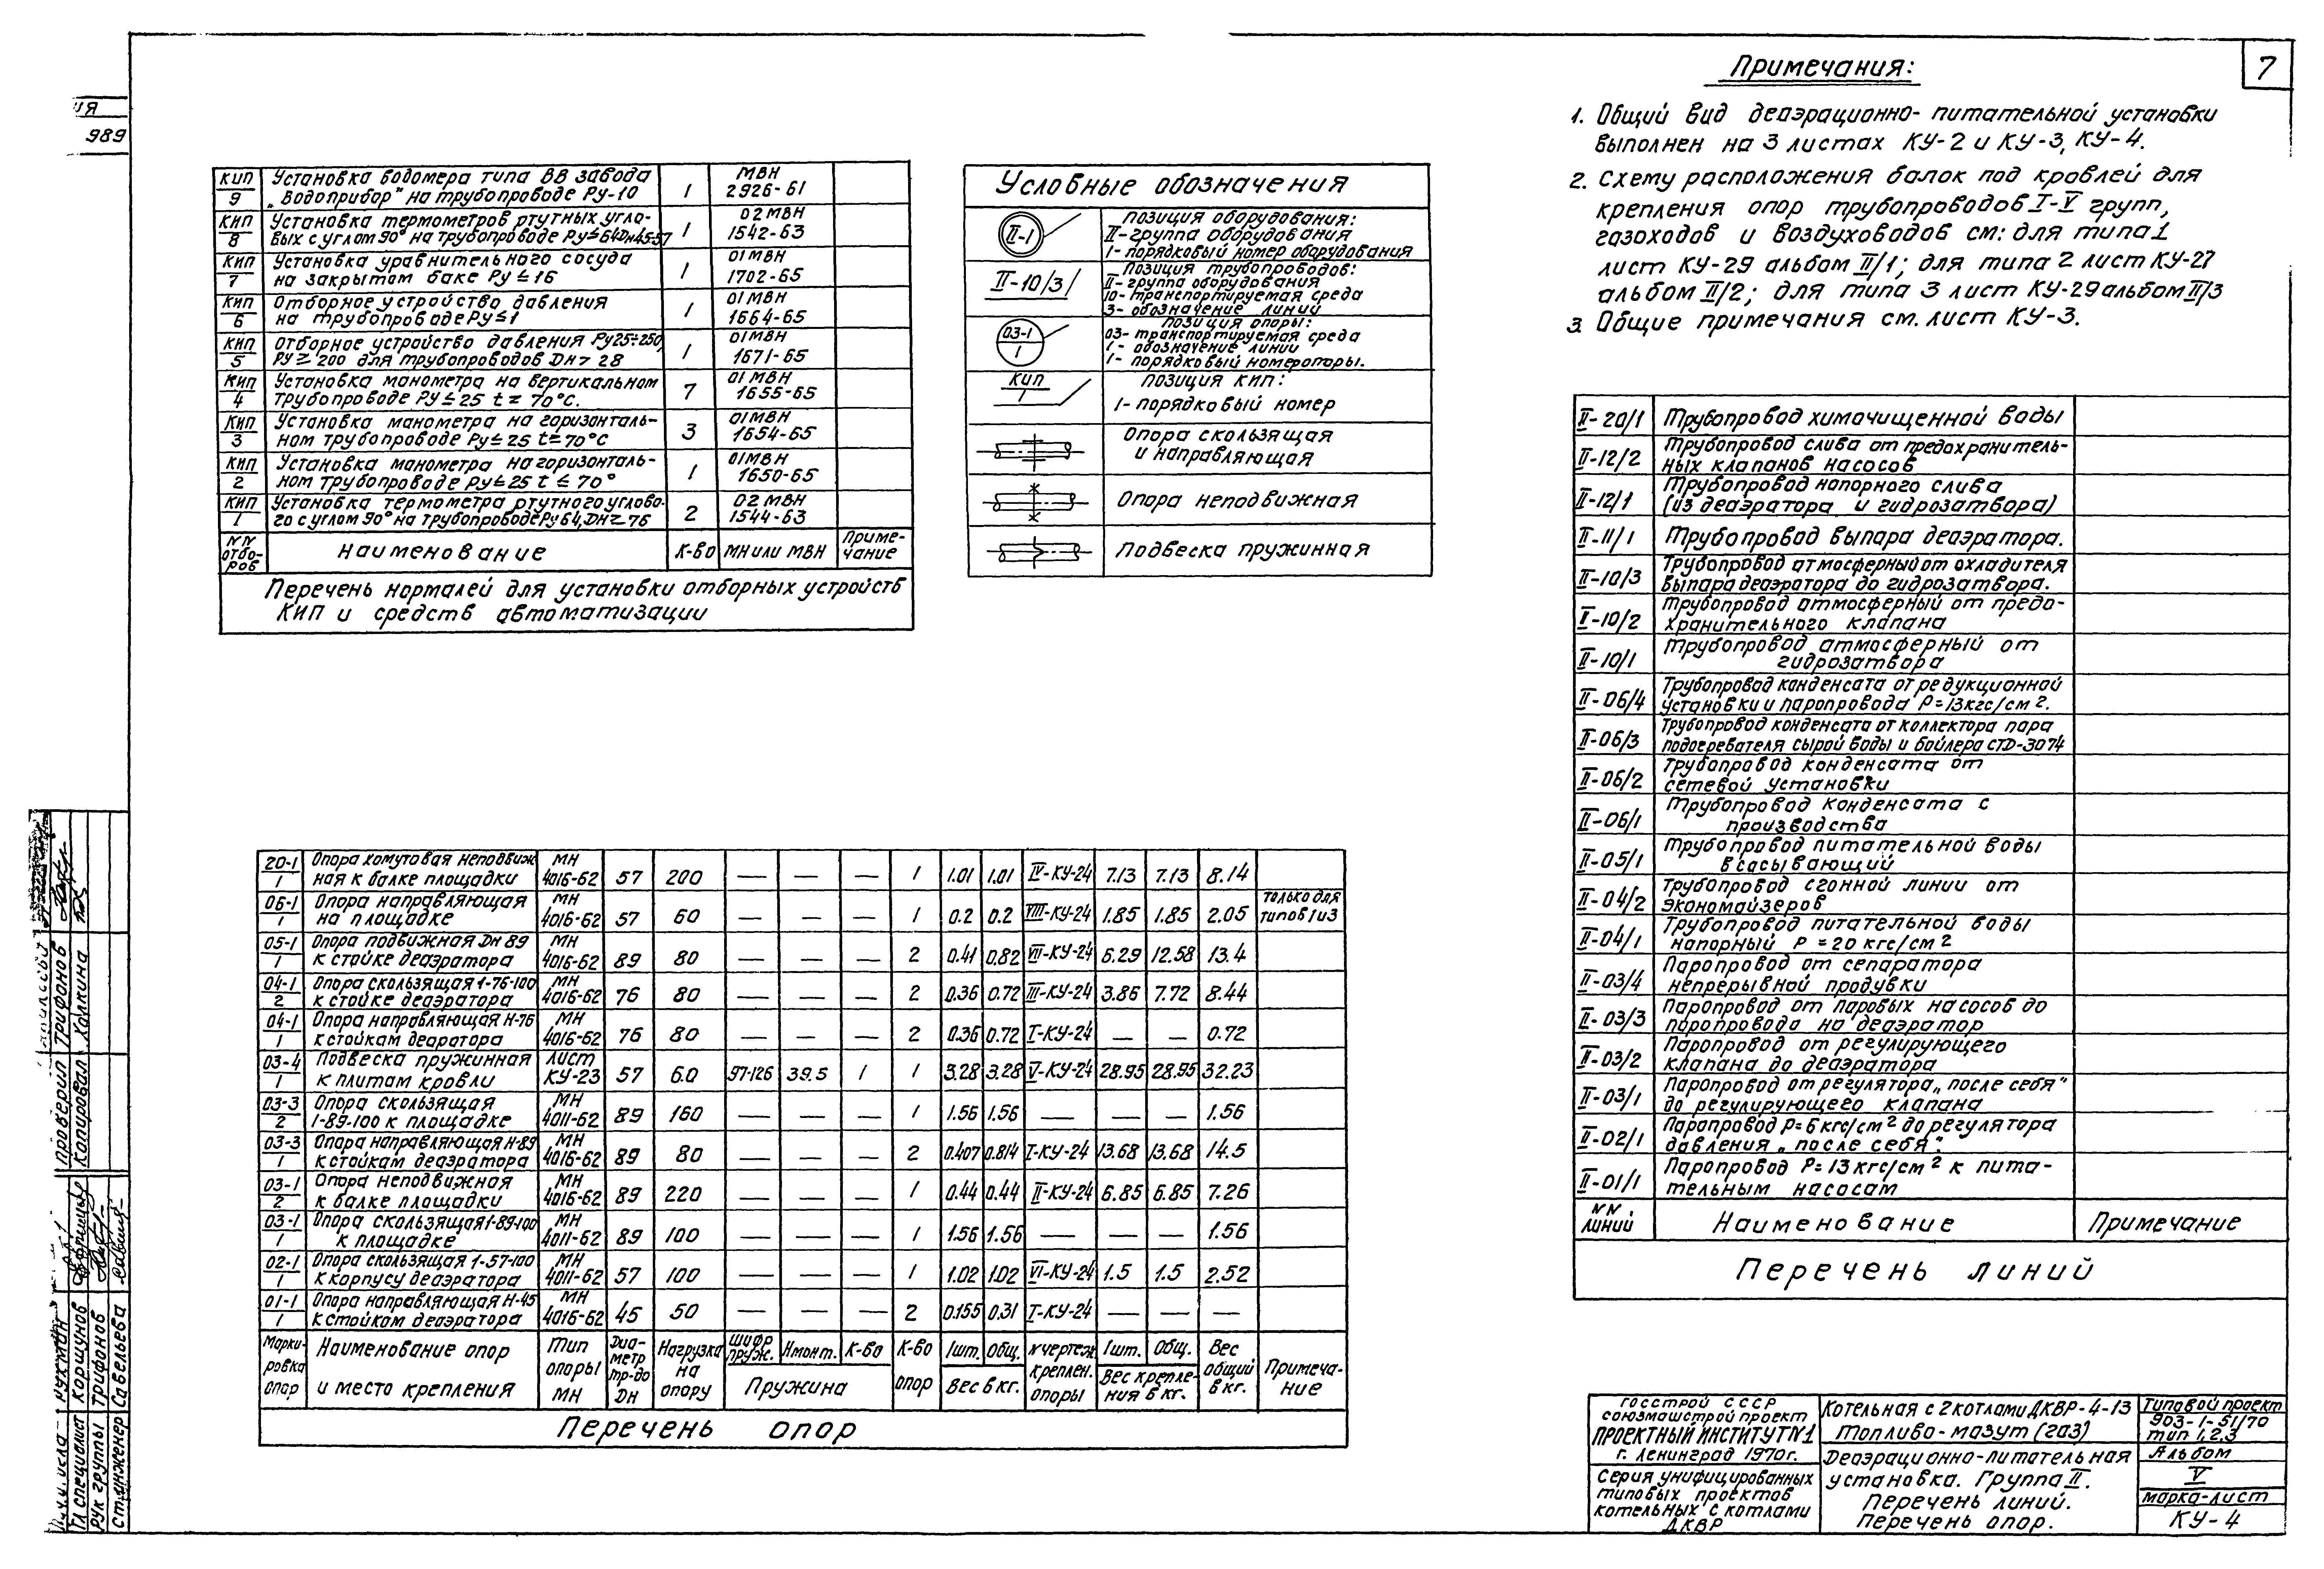 7
ия
989
Примечания:
1. Общий вид деаэрационно-питательной установки
выполнен на 3 листах КУ-2 и КУ-3, КУ-4.
2. Схему расположения балок под кровлей для
крепления опор трубопроводов I-V групп,
газоходов и воздуховодов см: для типа 1
лист КУ-29 альбом II/1; для типа 2 лист КУ-27
альбом II/2; для типа 3 лист КУ-29 альбом II/3
3. Общие примечания см. лист КУ-3.
КИП/9 Установка водомера типа ВВ завода
„Водоприбор" на трубопроводе Ру-10 1 МВН 2926-61
КИП/8 Установка термометров ртутных угло-
вых с углом 90° на трубопроводе Ру≤64 Дн45-57 1 02 МВН 1542-63
КИП/7 Установка уравнительного сосуда
на закрытом баке Ру≤16 1 01 МВН 1702-65
КИП/6 Отборное устройство давления
на трубопроводе Ру≤1 1 01 МВН 1664-65
КИП/5 Отборное устройство давления Ру25÷250,
Ру≥200 для трубопроводов Dн>28 1 01 МВН 1671-65
КИП/4 Установка манометра на вертикальном
трубопроводе Ру≤25 t≥70°С. 7 01 МВН 1655-65
КИП/3 Установка манометра на горизонталь-
ном трубопроводе Ру≤25 t≥70°С 3 01 МВН 1654-65
КИП/2 Установка манометра на горизонталь-
ном трубопроводе Ру≤25 t≤70° 1 01 МВН 1650-65
КИП/1 Установка термометра ртутного углово-
го с углом 90° на трубопроводе Ру64, Dн≥76 2 02 МВН 1544-63
NN отбо-ров Наименование К-во МН или МВН Приме-чание
Перечень нормалей для установки отборных устройств
КИП и средств автоматизации
Условные обозначения
II-1 Позиция оборудования:
II-группа оборудования
1- порядковый номер оборудования
II-10/3 Позиция трубопроводов:
II-группа оборудования
10-транспортируемая среда
3- обозначение линий
03-1/1 Позиция опоры:
03-транспортируемая среда
1- обозначение линии
1- порядковый номер опоры.
КИП/1 Позиция КИП:
1-порядковый номер
Опора скользящая
и направляющая
Опора неподвижная
Подвеска пружинная
II-20/1 Трубопровод химочищенной воды
II-12/2 Трубопровод слива от предохранитель-
ных клапанов насосов
II-12/1 Трубопровод напорного слива
(из деаэратора и гидрозатвора)
II-11/1 Трубопровод выпара деаэратора.
II-10/3 Трубопровод атмосферный от охладителя
выпара деаэратора до гидрозатвора.
II-10/2 Трубопровод атмосферный от предо-
хранительного клапана
II-10/1 Трубопровод атмосферный от
гидрозатвора
II-06/4 Трубопровод конденсата от редукционной
установки и паропровода Р=13кгс/см².
II-06/3 Трубопровод конденсата от коллектора пара
подогревателя сырой воды и бойлера СТД-3074
II-06/2 Трубопровод конденсата от
сетевой установки
II-06/1 Трубопровод конденсата с
производства
II-05/1 Трубопровод питательной воды
всасывающий
II-04/2 Трубопровод сгонной линии от
экономайзеров
II-04/1 Трубопровод питательной воды
напорный Р=20 кгс/см²
II-03/4 Паропровод от сепаратора
непрерывной продувки
II-03/3 Паропровод от паровых насосов до
паропровода на деаэратор
II-03/2 Паропровод от регулирующего
клапана до деаэратора
II-03/1 Паропровод от регулятора „после себя"
до регулирующего клапана
II-02/1 Паропровод Р=6кгс/см² до регулятора
давления „после себя".
II-01/1 Паропровод Р=13кгс/см² к пита-
тельным насосам
NN линий Наименование Примечание
Перечень линий
20-1/1 Опора хомутовая неподвиж
ная к балке площадки МН 4016-62 57 200 — — — 1 1.01 1.01 IV-КУ-24 7.13 7.13 8.14
06-1/1 Опора направляющая
на площадке МН 4016-62 57 60 — — — 1 0.2 0.2 VIII-КУ-24 1.85 1.85 2.05 только для типов 1 и 3
05-1/1 Опора подвижная Dн 89
к стойке деаэратора МН 4016-62 89 80 — — — 2 0.41 0.82 VII-КУ-24 6.29 12.58 13.4
04-1/2 Опора скользящая 1-76-100
к стойке деаэратора МН 4016-62 76 80 — — — 2 0.36 0.72 III-КУ-24 3.86 7.72 8.44
04-1/1 Опора направляющая Н-76
к стойкам деаратора МН 4016-62 76 80 — — — 2 0.36 0.72 I-КУ-24 — — 0.72
03-4/1 Подвеска пружинная
к плитам кровли лист КУ-23 57 60 97-126 39.5 1 1 3.28 3.28 V-КУ-24 28.95 28.95 32.23
03-3/2 Опора скользящая
1-89-100 к площадке МН 4011-62 89 160 — — — 1 1.56 1.56 — — — 1.56
03-3/1 Опора направляющая Н-89
к стойкам деаэратора МН 4016-62 89 80 — — — 2 0.407 0.814 I-КУ-24 13.68 13.68 14.5
03-1/2 Опора неподвижная
к балке площадки МН 4016-62 89 220 — — — 1 0.44 0.44 II-КУ-24 6.85 6.85 7.26
03-1/1 Опора скользящая 1-89-100
к площадке МН 4011-62 89 100 — — — 1 1.56 1.56 — — — 1.56
02-1/1 Опора скользящая 1-57-100
к корпусу деаэратора МН 4011-62 57 100 — — — 1 1.02 1.02 VI-КУ-24 1.5 1.5 2.52
01-1/1 Опора направляющая Н-45
к стойкам деаэратора МН 4016-62 45 50 — — — 2 0.155 0.31 I-КУ-24 — — —
Марки-ровка опор Наименование опор и место крепления Тип опоры МН Диа-метр тр-до Dн Нагрузка на опору шифр пруж. Нмонт. К-во Пружина К-во опор 1шт. Общ. Вес в кг. N чертеж. креплен. опоры 1шт. Общ. Вес крепле-ния в кг. Вес общий в кг. Примеча-ние
Перечень опор
Госстрой СССР
Союзмашстройпроект
Проектный институт N1
г. Ленинград 1970г.
Серия унифицированных
типовых проектов
котельных с котлами
ДКВР
Котельная с 2 котлами ДКВР-4-13
Топливо-мазут (газ)
Деаэрационно-питательная
установка. Группа II.
Перечень линий.
Перечень опор.
Типовой проект
903-1-51/70
тип 1,2,3
Альбом
V
марка-лист
КУ-4
Проверил Трифонов
Копировал Халкина
Гл специалист Коршунов
Рук группы Трифонов
Ст. инженер Савельева